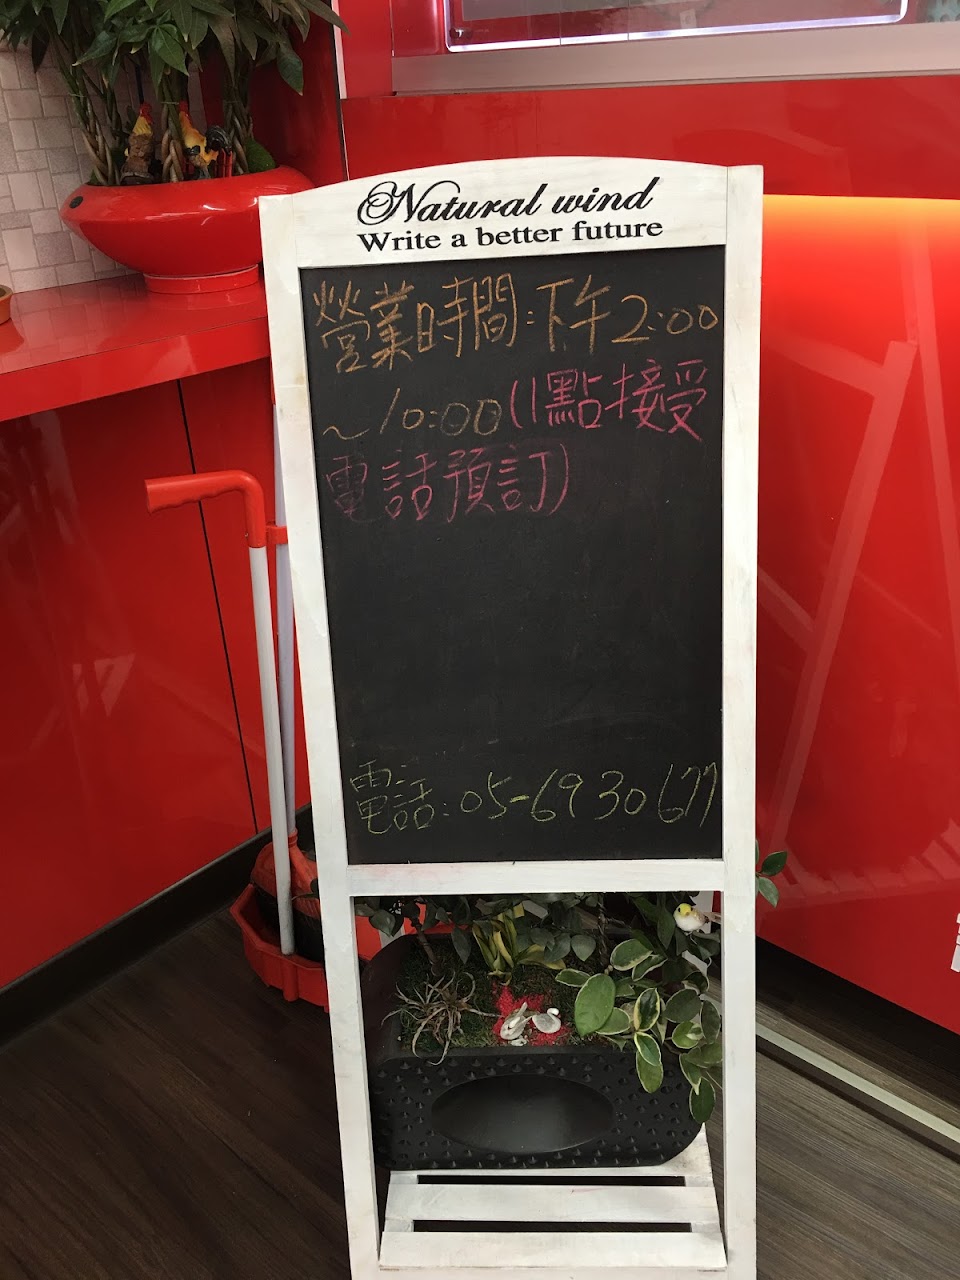 Natural wind
Write a better future
營業時間:下午2:00
~10:00(1點接受
電話預訂)
電話:05-6930677